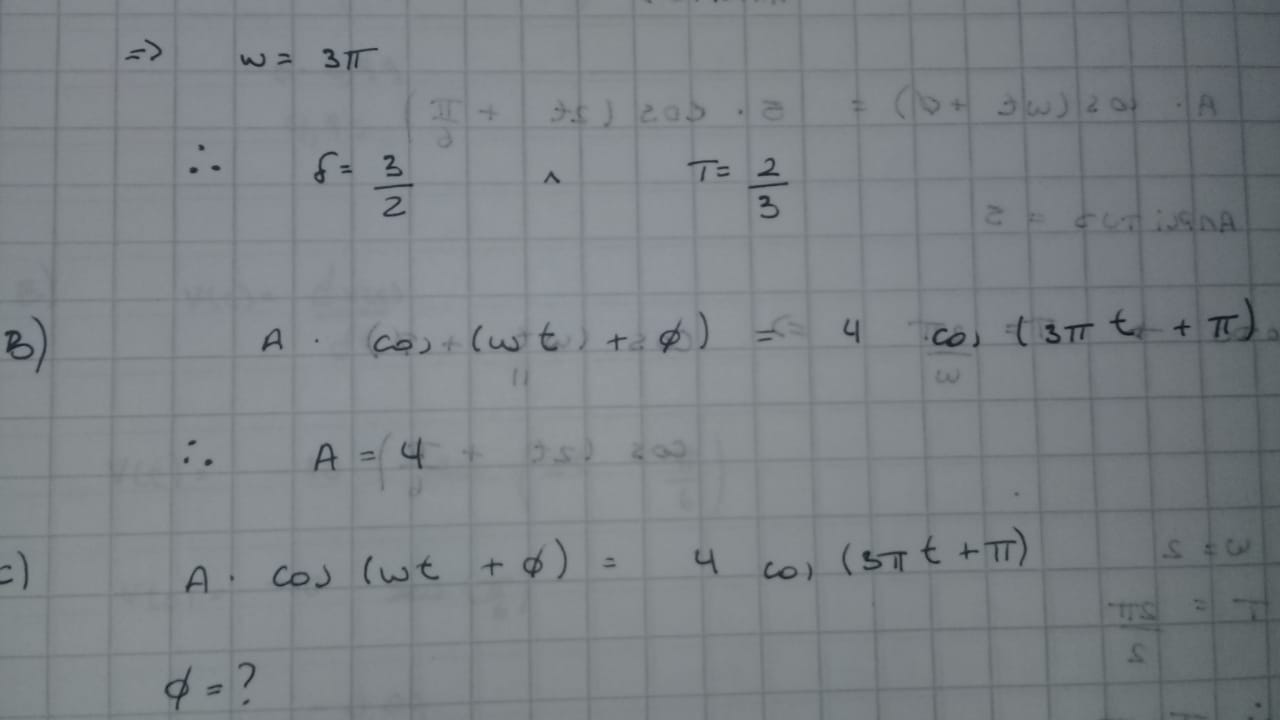 => w = 3π
∴ f = 3/2 ^ T = 2/3
B) A · cos (wt + φ) = 4 cos (3π t + π)
∴ A = 4
c) A · cos (wt + φ) = 4 cos (3π t + π)
φ = ?